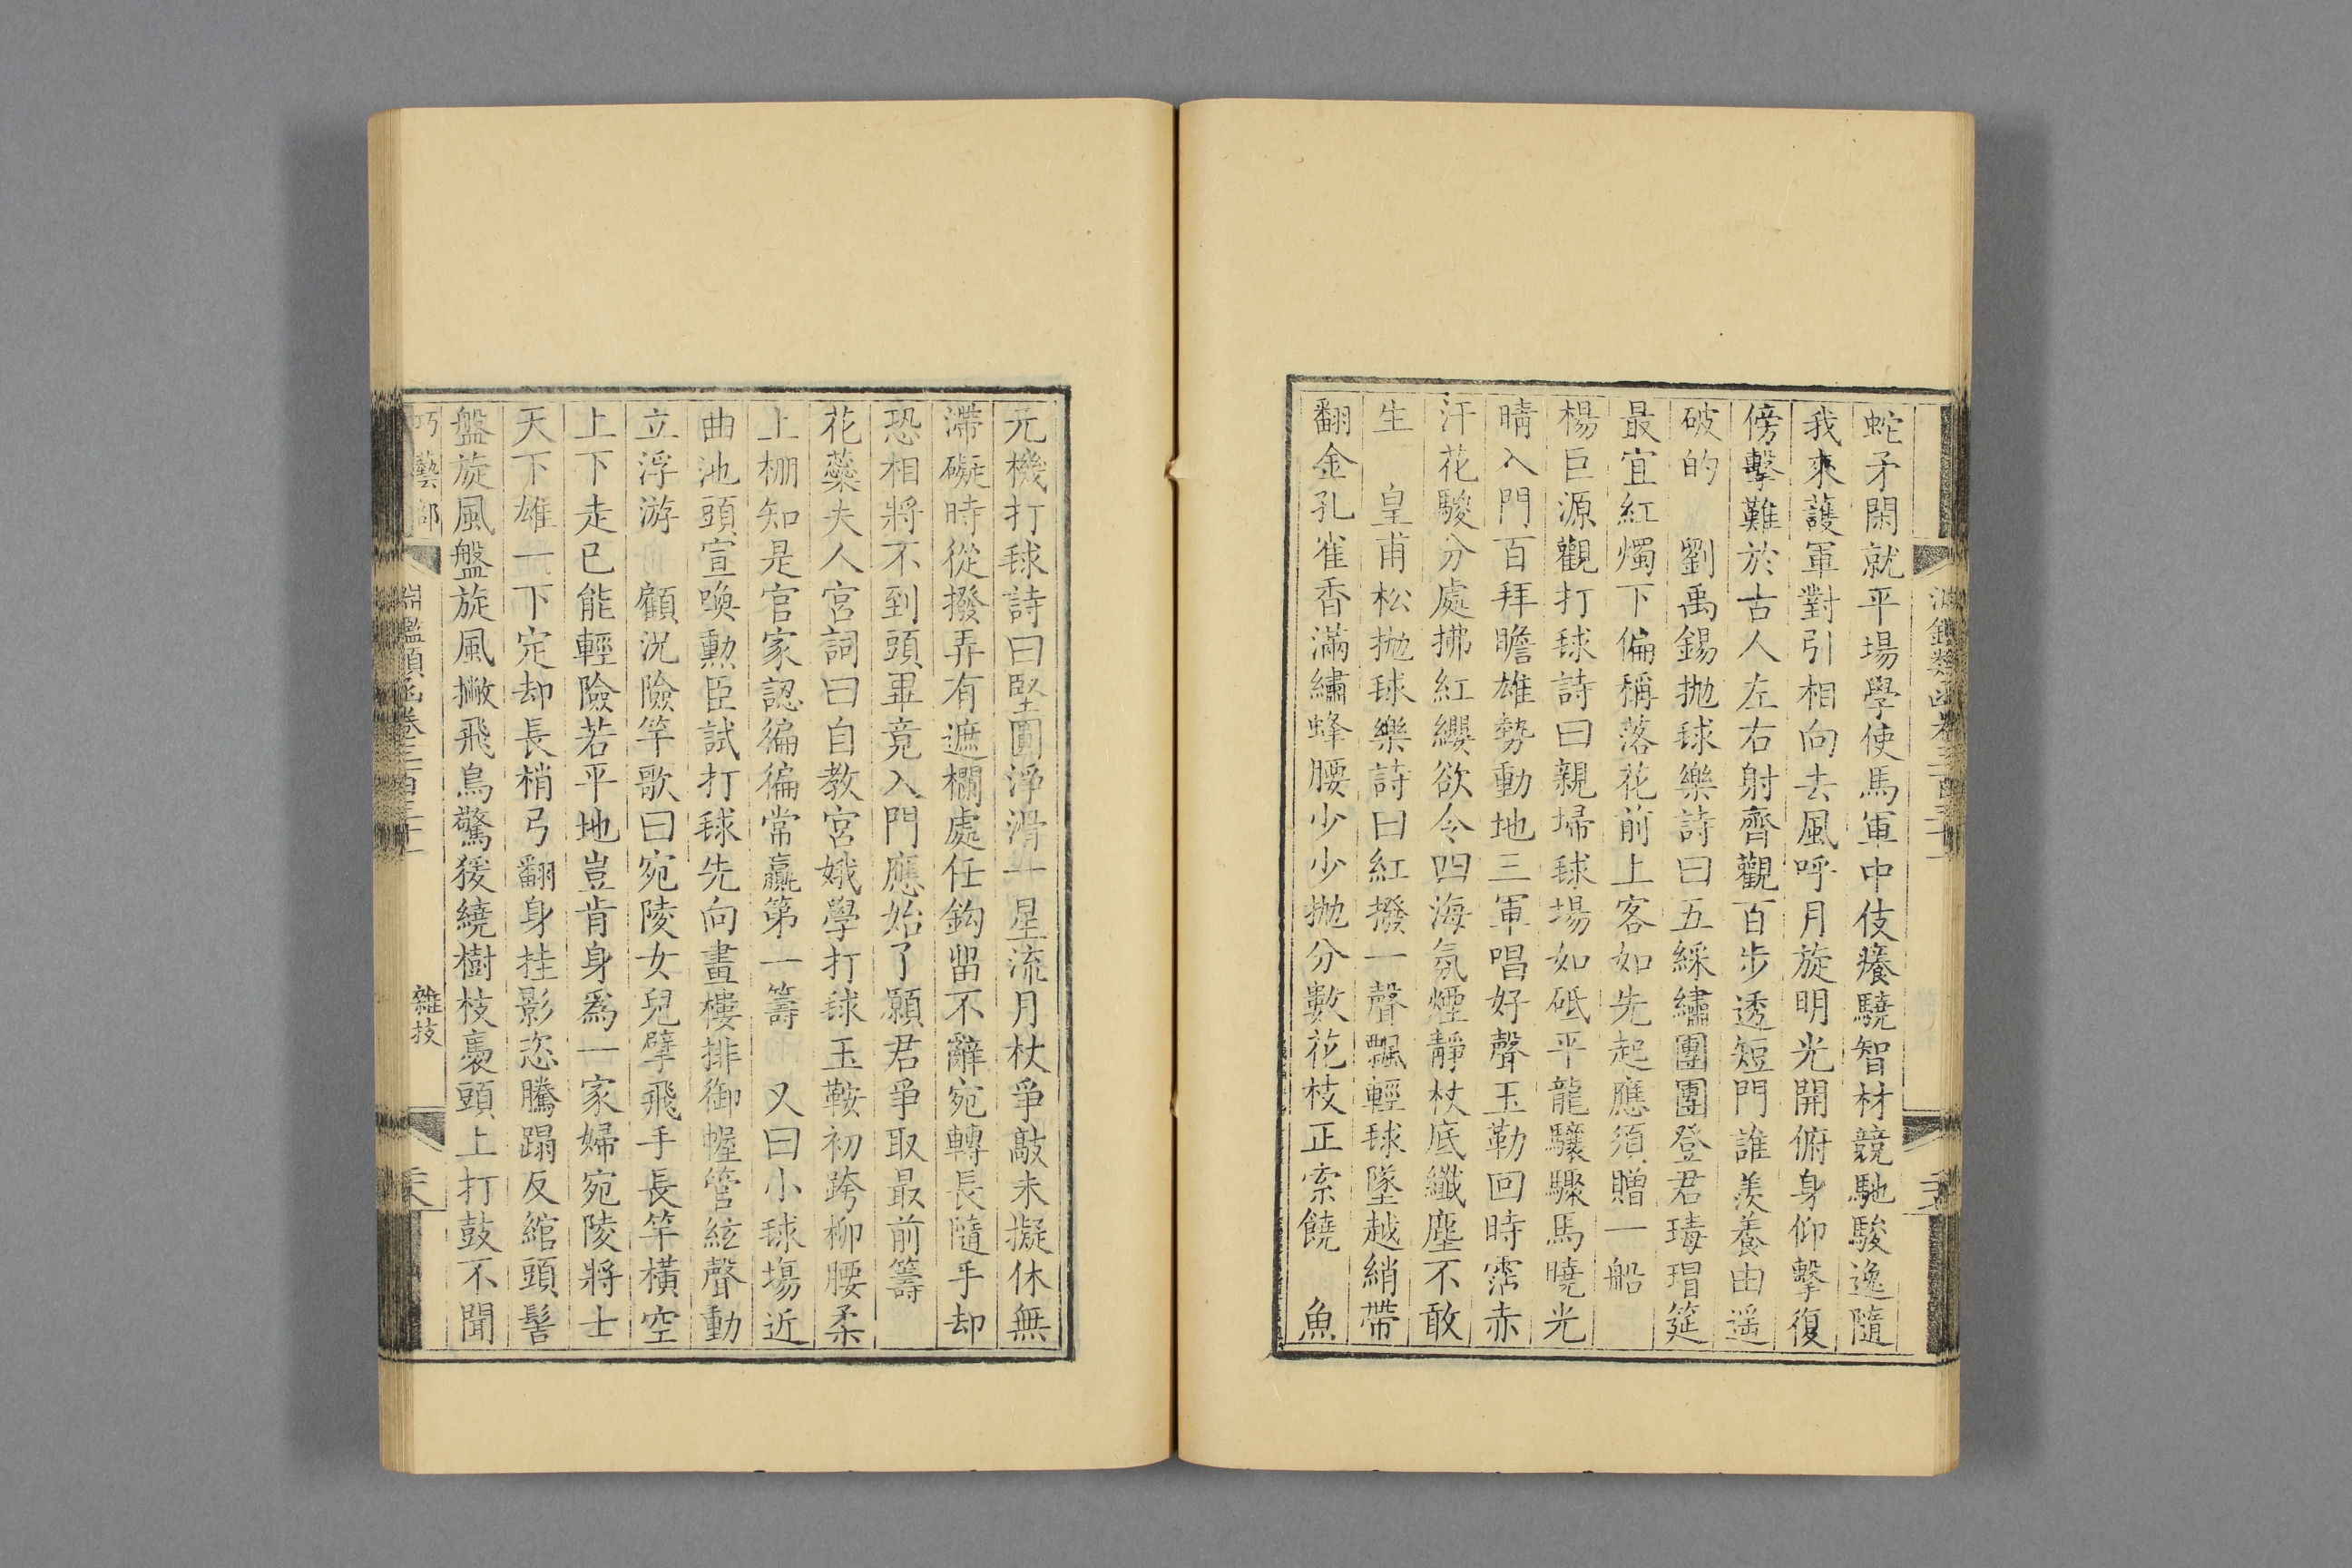 蛇矛閑就平場學使馬軍中伎癢驍智材競馳駿逸隨
我來護軍對引相向去風呼月旋明光開俯身仰擊復
傍擊難於古人左右射齊觀百步透短門誰羨養由遥
破的　劉禹錫抛毬樂詩曰五綵繡團團登君瑇瑁筵
最宜紅燭下偏稱落花前上客如先起應須贈一船
楊巨源觀打毬詩曰親埽毬場如砥平龍驤驟馬曉光
晴入門百拜瞻雄勢動地三軍唱好聲玉勒回時霑赤
汗花駿分處拂紅纓欲令四海氛煙靜杖底纖塵不敢
生　皇甫松抛毬樂詩曰紅撥一聲飄輕毬墜越綃帶
翻金孔雀香滿繡蜂腰少少抛分數花枝正索饒　魚
元機打毬詩曰堅圓淨滑一星流月杖爭敲未擬休無
滯礙時從撥弄有遮欄處任鈎留不辭宛轉長隨手却
恐相將不到頭畢竟入門應始了願君爭取最前籌
花蘂夫人宮詞曰自教宮娥學打毬玉鞍初跨柳腰柔
上棚知是官家認徧徧常贏第一籌　又曰小毬場近
曲池頭宣喚勲臣試打毬先向畫樓排御幄管絃聲動
立浮游　顧況險竿歌曰宛陵女兒擘飛手長竿橫空
上下走已能輕險若平地豈肯身爲一家婦宛陵將士
天下雄一下定却長梢弓翻身挂影恣騰蹋反綰頭髻
盤旋風盤旋風撇飛鳥驚猨繞樹枝裊頭上打鼓不聞
巧藝部　淵鑑類函卷三百三十　雜技